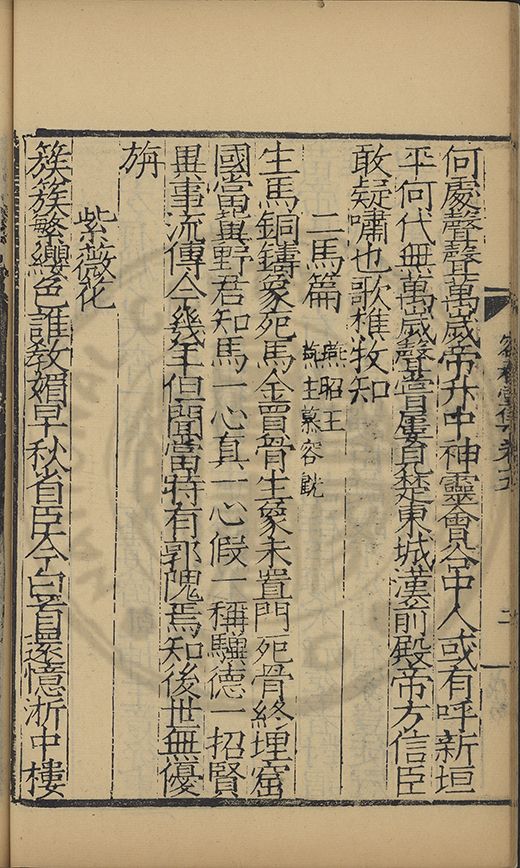 何處聲聲萬歲帝升中神靈會谷中人或有呼新垣
平何代無萬歲聲嘗屢見楚東城漢前殿帝方信臣
敢疑嘯也歌樵牧知
二馬篇 燕昭王 燕主慕容皝
生馬銅鑄象死馬金買骨生象未置門死骨終埋窟
國當冀野君知馬一心真一心假一稱驥德一招賢
異事流傳今幾年但聞當時有郭隗焉知後世無優
旃
紫薇花
簇簇繁纓色誰教媚早秋省臣今白首還憶浙中樓